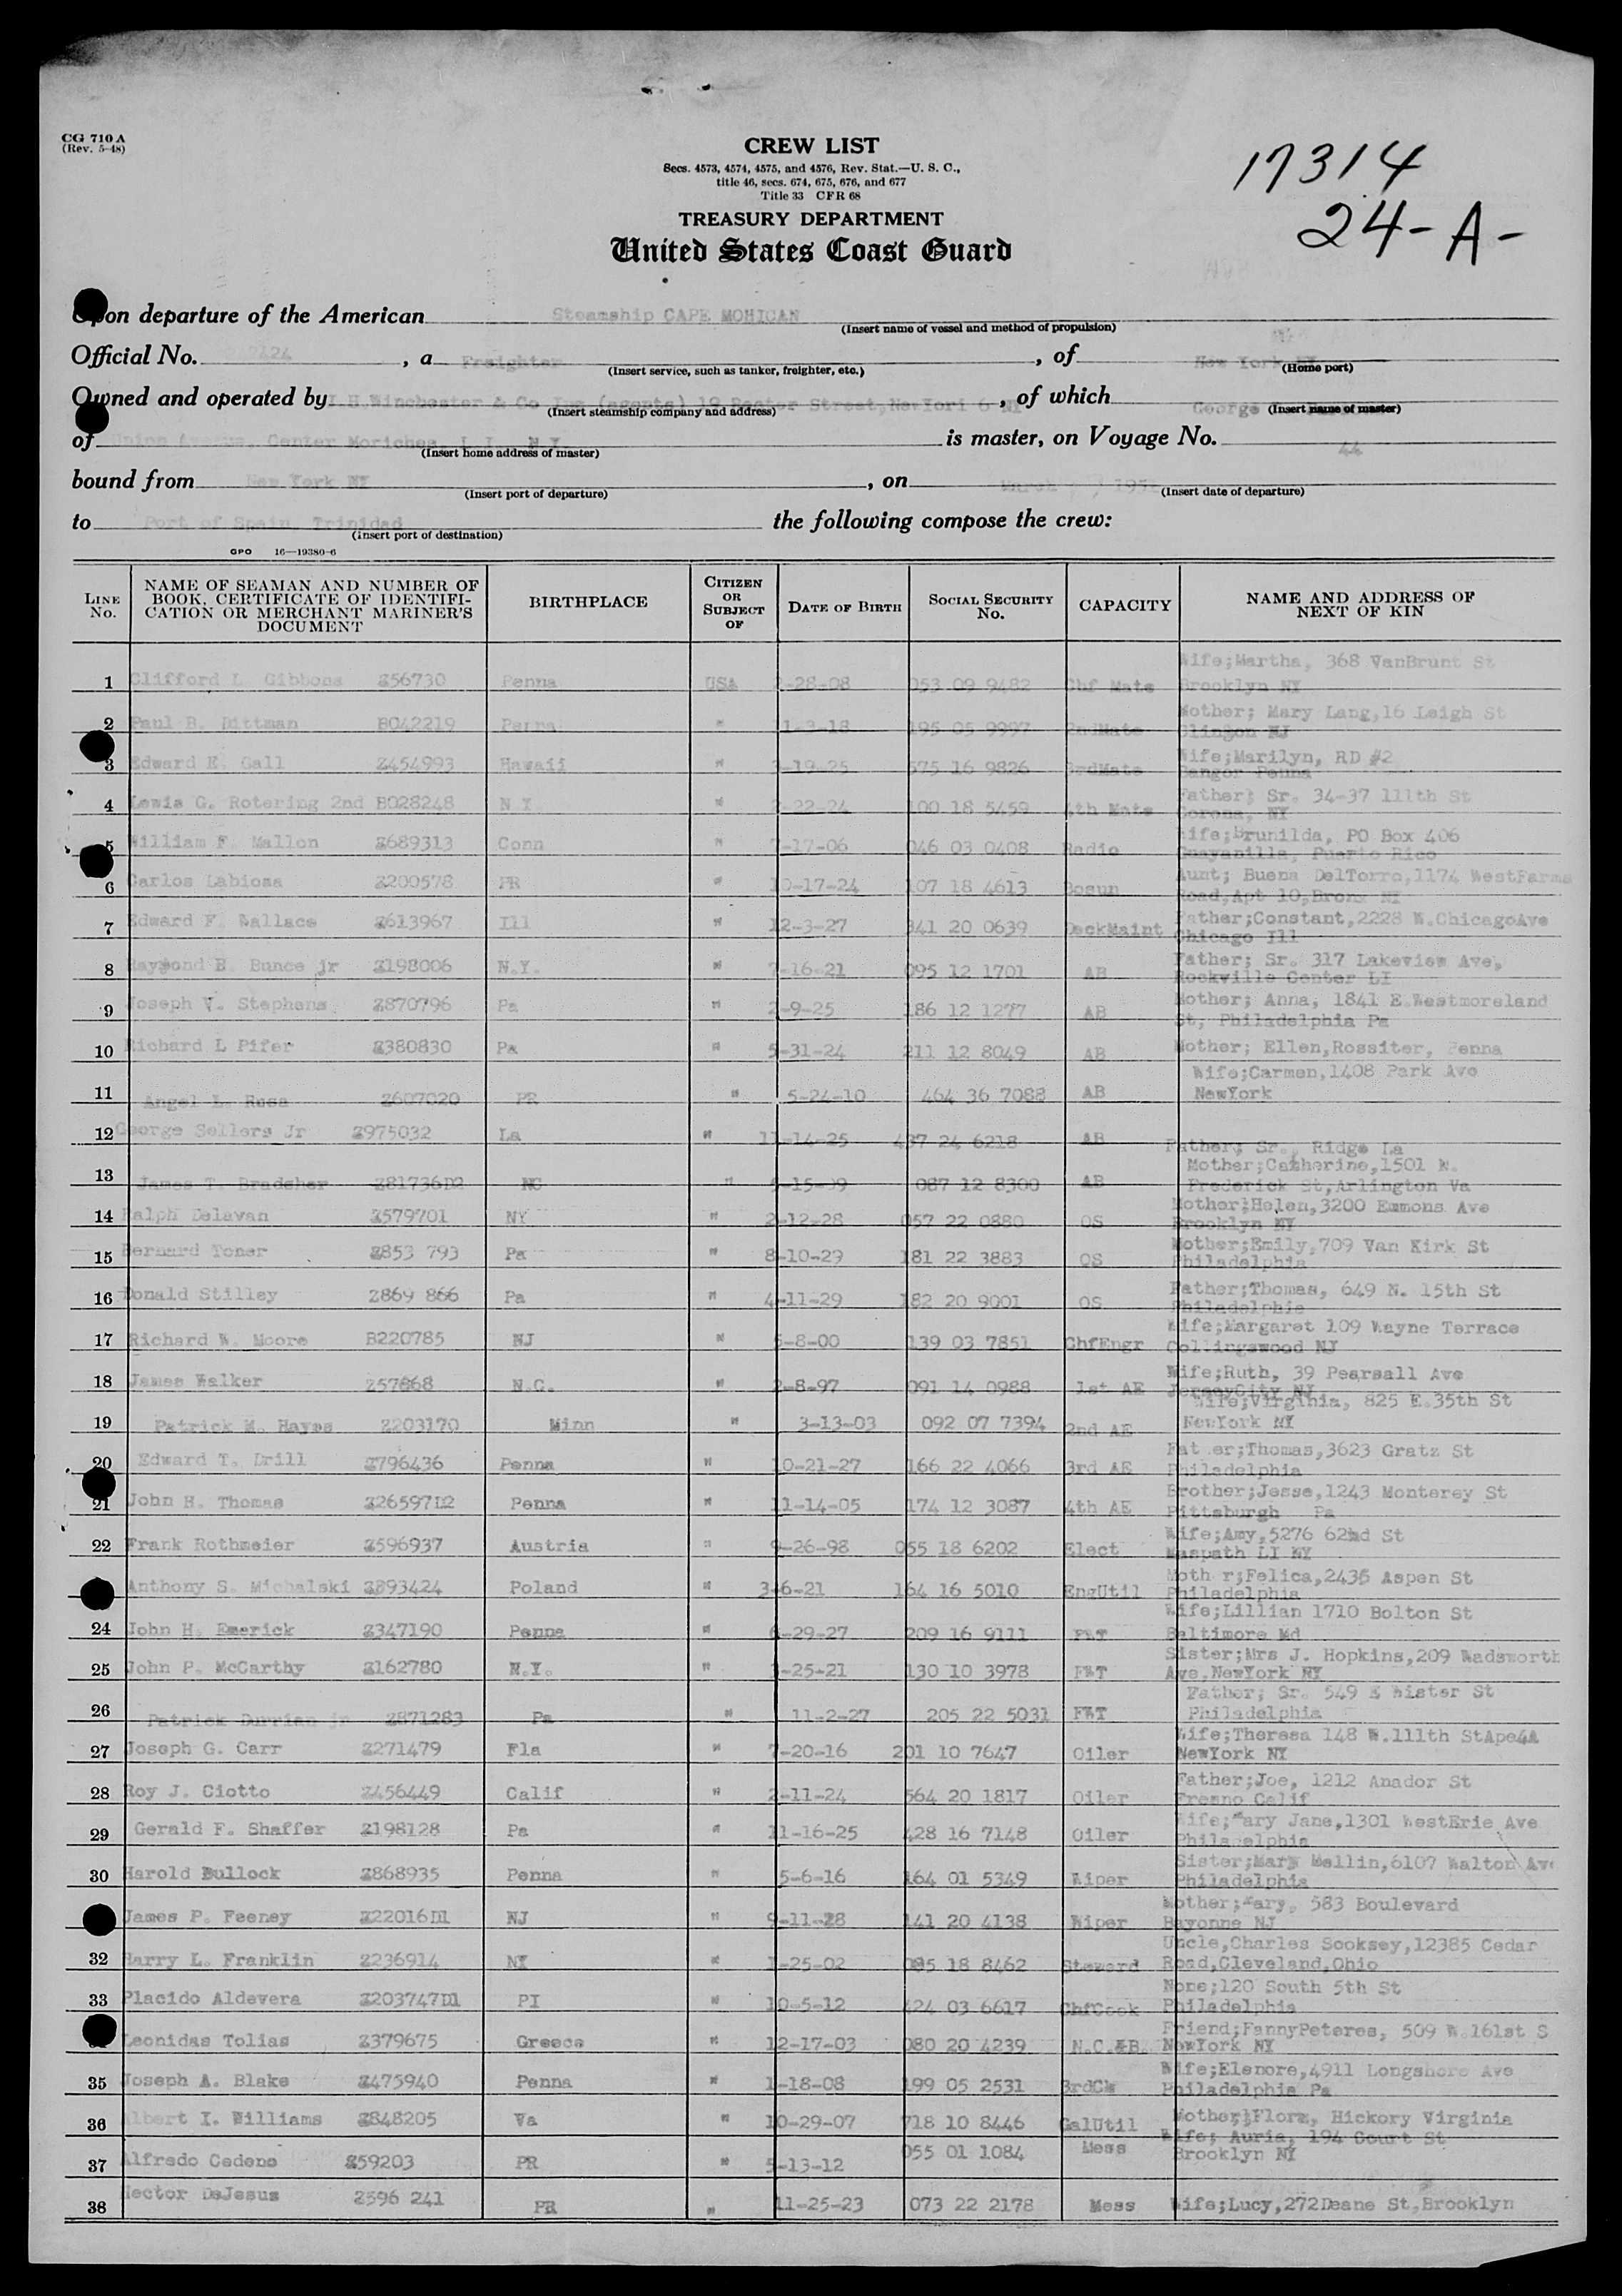 CG 710 A
(Rev. 5-48)
CREW LIST
Secs. 4573, 4574, 4575, and 4576, Rev. Stat.—U. S. C.,
title 46, secs. 674, 675, 676, and 677
Title 33 CFR 68
TREASURY DEPARTMENT
United States Coast Guard
17314
24-A-
Upon departure of the American Steamship CAPE MOHICAN
(Insert name of vessel and method of propulsion)
Official No. , a Freighter , of New York NY
(Insert service, such as tanker, freighter, etc.) (Home port)
Owned and operated by J.H.Winchester & Co Inc (agents) 19 Rector Street, NewYork 6 NY , of which George
(Insert steamship company and address) (Insert name of master)
of Union Avenue, Center Moriches, L I, N Y is master, on Voyage No. 44
(Insert home address of master)
bound from New York NY , on March
(Insert port of departure) (Insert date of departure)
to Port of Spain, Trinidad the following compose the crew:
(Insert port of destination)
GPO 16—19380-6
LINE No. NAME OF SEAMAN AND NUMBER OF BOOK, CERTIFICATE OF IDENTIFICATION OR MERCHANT MARINER'S DOCUMENT BIRTHPLACE CITIZEN OR SUBJECT OF DATE OF BIRTH SOCIAL SECURITY No. CAPACITY NAME AND ADDRESS OF NEXT OF KIN
Wife;Martha, 368 VanBrunt St
1 Clifford L Gibbons Z56730 Penna USA 2-28-08 053 09 9482 Chf Mate Brooklyn NY
Mother; Mary Lang,16 Leigh St
2 Paul B. Dittman BO42219 Penna " 11-3-18 195 05 9997 2ndMate Clington NJ
Wife;Marilyn, RD #2
3 Edward E. Gall Z454993 Hawaii " -19-25 575 16 9826 3rdMate Bangor Penna
Father; Sr. 34-37 111th St
4 Lewis G. Rotering 2nd BO28248 N Y " 2-22-24 100 18 5459 4th Mate Corona, NY
Wife;Brunilda, PO Box 406
5 William F. Mallon Z689313 Conn " 7-17-06 046 03 0408 Radio Guayanilla, Puerto Rico
Aunt; Buena DelTorro,1174 WestFarms
6 Carlos Labiosa Z200578 PR " 10-17-24 107 18 4613 Bosun Road,Apt 10,Bronx NY
Father;Constant,2228 W.ChicagoAve
7 Edward F. Wallace Z613967 Ill " 12-3-27 341 20 0639 DeckMaint Chicago Ill
Father; Sr. 317 Lakeview Ave,
8 Raymond B. Bunce jr Z198006 N.Y. " 7-16-21 095 12 1701 AB Rockville Center LI
Mother; Anna, 1841 E.Westmoreland
9 Joseph V. Stephens Z870796 Pa " 2-9-25 186 12 1277 AB St, Philadelphia Pa
10 Richard L Pifer Z380830 Pa " 5-31-24 211 12 8049 AB Mother; Ellen,Rossiter, Penna
Wife;Carmen,1408 Park Ave
11 Angel L. Rosa Z607020 PR " 5-24-10 464 36 7088 AB NewYork
12 George Sellers Jr Z975032 La " 11-14-25 437 24 6218 AB Father; Sr., Ridge La
Mother;Catherine,1501 N.
13 James T. Bradsher Z81736D2 NC " 5-15-09 087 12 8300 AB Frederick St,Arlington Va
Mother;Helen,3200 Emmons Ave
14 Ralph Delavan Z579701 NY " 2-12-28 057 22 0880 OS Brooklyn NY
Mother;Emily,709 Van Kirk St
15 Bernard Toner Z853 793 Pa " 8-10-29 181 22 3883 OS Philadelphia
Father;Thomas, 649 N. 15th St
16 Donald Stilley Z869 866 Pa " 4-11-29 182 20 9001 OS Philadelphia
Wife;Margaret 109 Wayne Terrace
17 Richard W. Moore B220785 NJ " 5-8-00 139 03 7851 ChfEngr Collingswood NJ
Wife;Ruth, 39 Pearsall Ave
18 James Walker Z57868 N.C. " 2-8-97 091 14 0988 1st AE JerseyCity NJ
Wife;Virginia, 825 E.35th St
19 Patrick M. Hayes Z203170 Minn " 3-13-03 092 07 7394 2nd AE NewYork NY
Father;Thomas,3623 Gratz St
20 Edward T. Drill Z796436 Penna " 10-21-27 166 22 4066 3rd AE Philadelphia
Brother;Jesse,1243 Monterey St
21 John H. Thomas Z26597D2 Penna " 11-14-05 174 12 3087 4th AE Pittsburgh Pa
Wife;Amy,5276 62nd St
22 Frank Rothmeier Z596937 Austria " 9-26-98 055 18 6202 Elect Maspath LI NY
Moth r;Felica,2435 Aspen St
Anthony S. Michalski Z893424 Poland " 3-6-21 164 16 5010 EngUtil Philadelphia
Wife;Lillian 1710 Bolton St
24 John H. Emerick Z347190 Penna " 6-29-27 209 16 9111 FWT Baltimore Md
Sister;Mrs J. Hopkins,209 Wadsworth
25 John P. McCarthy Z162780 N.Y. " -25-21 130 10 3978 FWT Ave,NewYork NY
Father; Sr. 549 E Wister St
26 Patrick Durrian jr Z871283 Pa " 11-2-27 205 22 5031 FWT Philadelphia
Wife;Theresa 148 W.111th StApe4A
27 Joseph G. Carr Z271479 Fla " 7-20-16 201 10 7647 Oiler NewYork NY
Father;Joe, 1212 Anador St
28 Roy J. Ciotto Z456449 Calif " 2-11-24 564 20 1817 Oiler Fresno Calif
Wife;Mary Jane,1301 WestErie Ave
29 Gerald F. Shaffer Z198128 Pa " 11-16-25 428 16 7148 Oiler Philadelphia
Sister;Mary Mellin,6107 Walton Ave
30 Harold Bullock Z868935 Penna " 5-6-16 164 01 5349 Wiper Philadelphia
Mother;Mary, 583 Boulevard
James P. Feeney Z22016D1 NJ " 9-11-28 141 20 4138 Wiper Bayonne NJ
Uncle,Charles Sooksey,12385 Cedar
32 Harry L. Franklin Z236914 NY " 1-25-02 085 18 8462 Steward Road,Cleveland,Ohio
None;120 South 5th St
33 Placido Aldevera Z203747D1 PI " 10-5-12 424 03 6617 ChfCook Philadelphia
Friend;FannyPeteres, 509 W.161st S
Leonidas Tolias Z379675 Greece " 12-17-03 080 20 4239 N.C.&B. NewYork NY
Wife;Elenore,4911 Longshore Ave
35 Joseph A. Blake Z475940 Penna " 1-18-08 199 05 2531 3rdCk Philadelphia Pa
36 Albert I. Williams Z848205 Va " 10-29-07 718 10 8446 GalUtil Mother;Flora, Hickory Virginia
Wife; Auria, 194 Court St
37 Alfredo Cedeno Z59203 PR " 5-13-12 055 01 1084 Mess Brooklyn NY
38 Hector DeJesus Z596 241 PR " 11-25-23 073 22 2178 Mess Wife;Lucy,272Deane St,Brooklyn